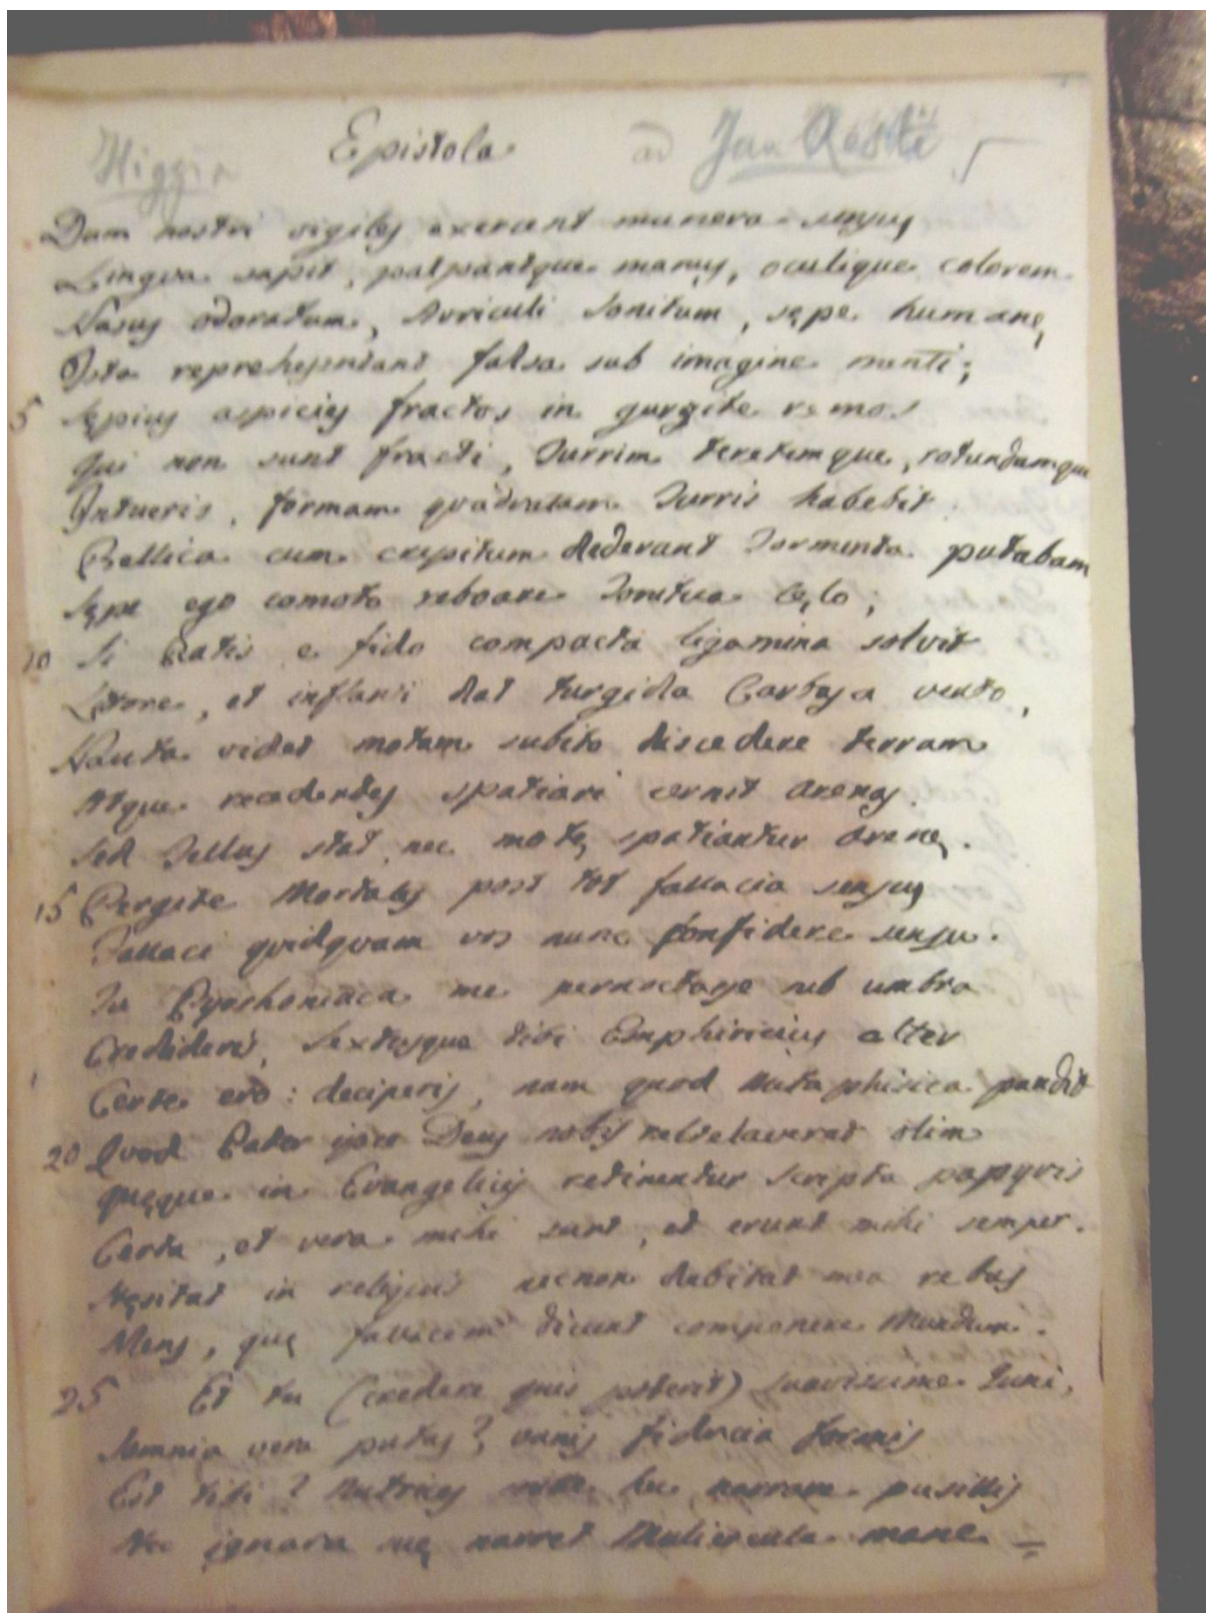 Higgia Epistola ad Jun. Resti
Dum nostri vigiles exercent munera sensus
Lingua sapit, palpantque manus, oculique colorem
Nasus odoratum, Auriculi sonitum, sępe humanę
Ista reprehesentant falsa sub imagine menti;
5 sępius aspicies fractos in gurgite remos
Qui non sunt fracti, Turrim teretemque, rotundamque
Intueris, formam quadratam Turris habebit
Bellica cum crepitum dederant Tormenta putabam
Sępe ego comoto reboare Tonitrua Cęlo;
10 Si Ratis e fido compacta ligamina solvit
Litore, et inflanti dat turgida Carbasa vento,
Nauta videt motam subito discedere terram
Atque recedentes spatiari cernit arenas.
Sed Tellus stat, nec motę spatiantur arenę.
15 Pergite Mortales post tot fallacia sensus
Fallaci quidquam vos nunc confidere sensu.
In Pyrrhoniaca me pernoctasse sub umbra
Credideris, Sextusque tibi Emphiricius alter
Certe ero: deciperis, nam quod Metaphisica pandit
20 Quod Pater ipse Deus nobis relvelaverat olim
quęque in Evangeliis retinentur scripta papyris
Certa, et vera mihi sunt, et erunt mihi semper.
Hęsitat in reliquis necnon dubitat mea rebus
Mens, quę fallacem dicunt componere Mundum.
25 Et tu (credere quis poterit) suavissime Juni,
Somnia vera putas? vanis fiducia formis
Est tibi? Nutrices hec narrare pusillis
Nec ignara narret Muliercula mane =